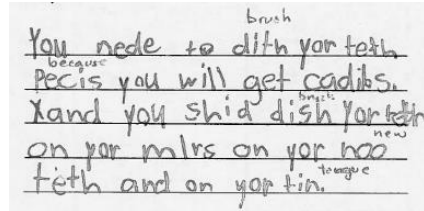 brush
You nede to dith yor teth
because
Pecis you will get cadibs.
brush
Xand you shid dish yor teth
new
on yor mlrs on yor noo
tongue
teth and on yor tin.